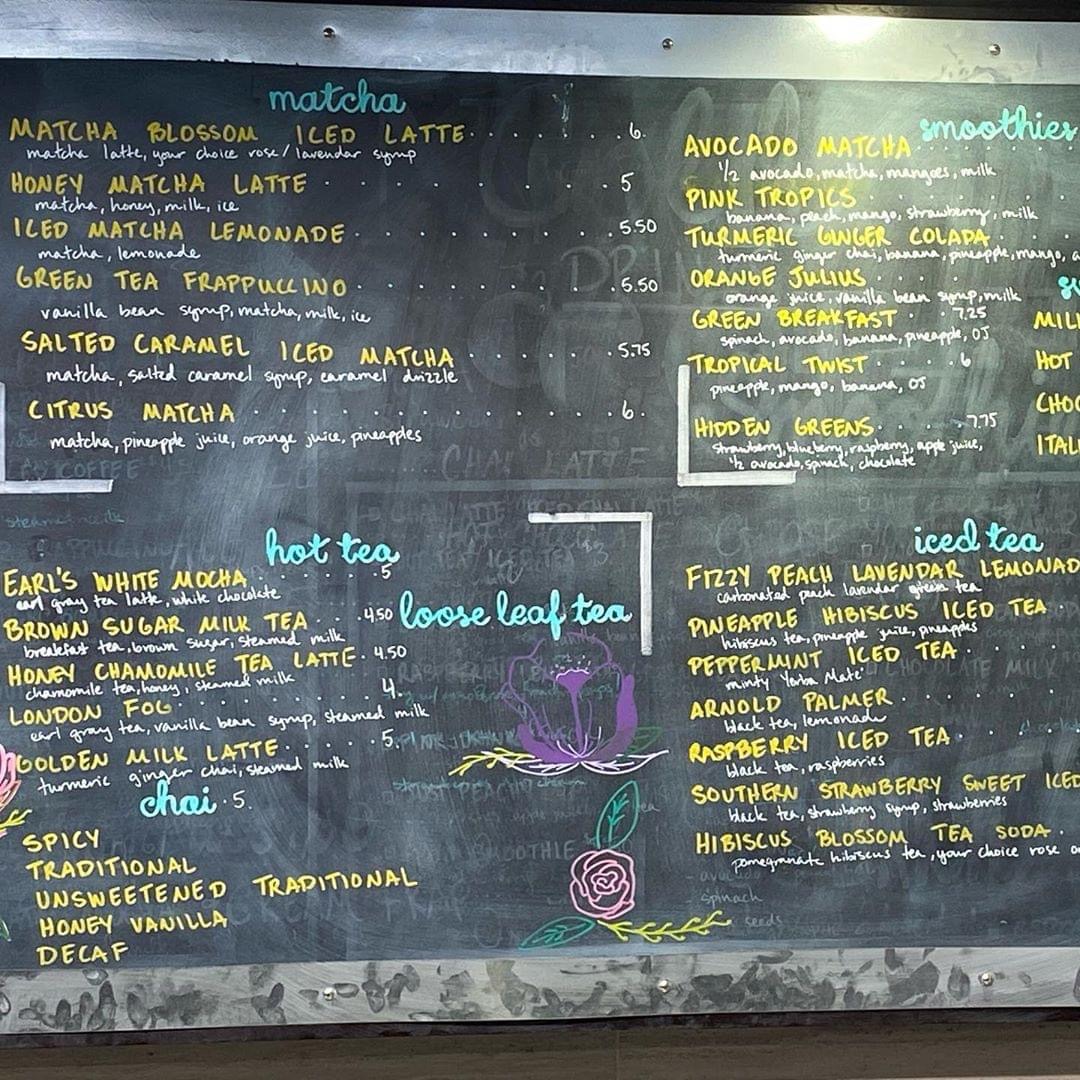 matcha
MATCHA BLOSSOM ICED LATTE . . . . . . . . . 6.
matcha latte, your choice rose/lavendar syrup
HONEY MATCHA LATTE . . . . . . . . . 5
matcha, honey, milk, ice
ICED MATCHA LEMONADE . . . . . . . . . 5.50
matcha, lemonade
GREEN TEA FRAPPUCCINO . . . . . . . . . 5.50
vanilla bean syrup, matcha, milk, ice
SALTED CARAMEL ICED MATCHA . . . . . . 5.75
matcha, salted caramel syrup, caramel drizzle
CITRUS MATCHA . . . . . . . . . . . . 6.
matcha, pineapple juice, orange juice, pineapples
smoothies
AVOCADO MATCHA
1/2 avocado, matcha, mangoes, milk
PINK TROPICS
banana, peach, mango, strawberry, milk
TURMERIC GINGER COLADA
turmeric ginger chai, banana, pineapple, mango,
ORANGE JULIUS
orange juice, vanilla bean syrup, milk
GREEN BREAKFAST . . 7.25
spinach, avocado, banana, pineapple, OJ
TROPICAL TWIST . . . 6
pineapple, mango, banana, OJ
HIDDEN GREENS . . . . 7.75
strawberry, blueberry, raspberry, apple juice,
1/2 avocado, spnack, chocolate
HOT
hot tea
EARL'S WHITE MOCHA . . . . . 5
earl gray tea latte, white chocolate
BROWN SUGAR MILK TEA . . . 4.50
breakfast tea, brown sugar, steamed milk
HONEY CHAMOMILE TEA LATTE . 4.50
chamomile tea, honey, steamed milk
LONDON FOG . . . . . . . . 4.
earl gray tea, vanilla bean syrup, steamed milk
GOLDEN MILK LATTE . . . . . 5.
turmeric ginger chai, steamed milk
loose leaf tea
chai . 5.
SPICY
TRADITIONAL
UNSWEETENED TRADITIONAL
HONEY VANILLA
DECAF
iced tea
FIZZY PEACH LAVENDAR LEMONAD
carbonated peach lavendar green tea
PINEAPPLE HIBISCUS ICED TEA
hibiscus tea, pineapple juice, pineapples
PEPPERMINT ICED TEA
minty Yerba Mate
ARNOLD PALMER
black tea, lemonade
RASPBERRY ICED TEA
black tea, raspberries
SOUTHERN STRAWBERRY SWEET ICED
black tea, strawberry syrup, strawberries
HIBISCUS BLOSSOM TEA SODA
pomegranate hibiscus tea, your choice rose